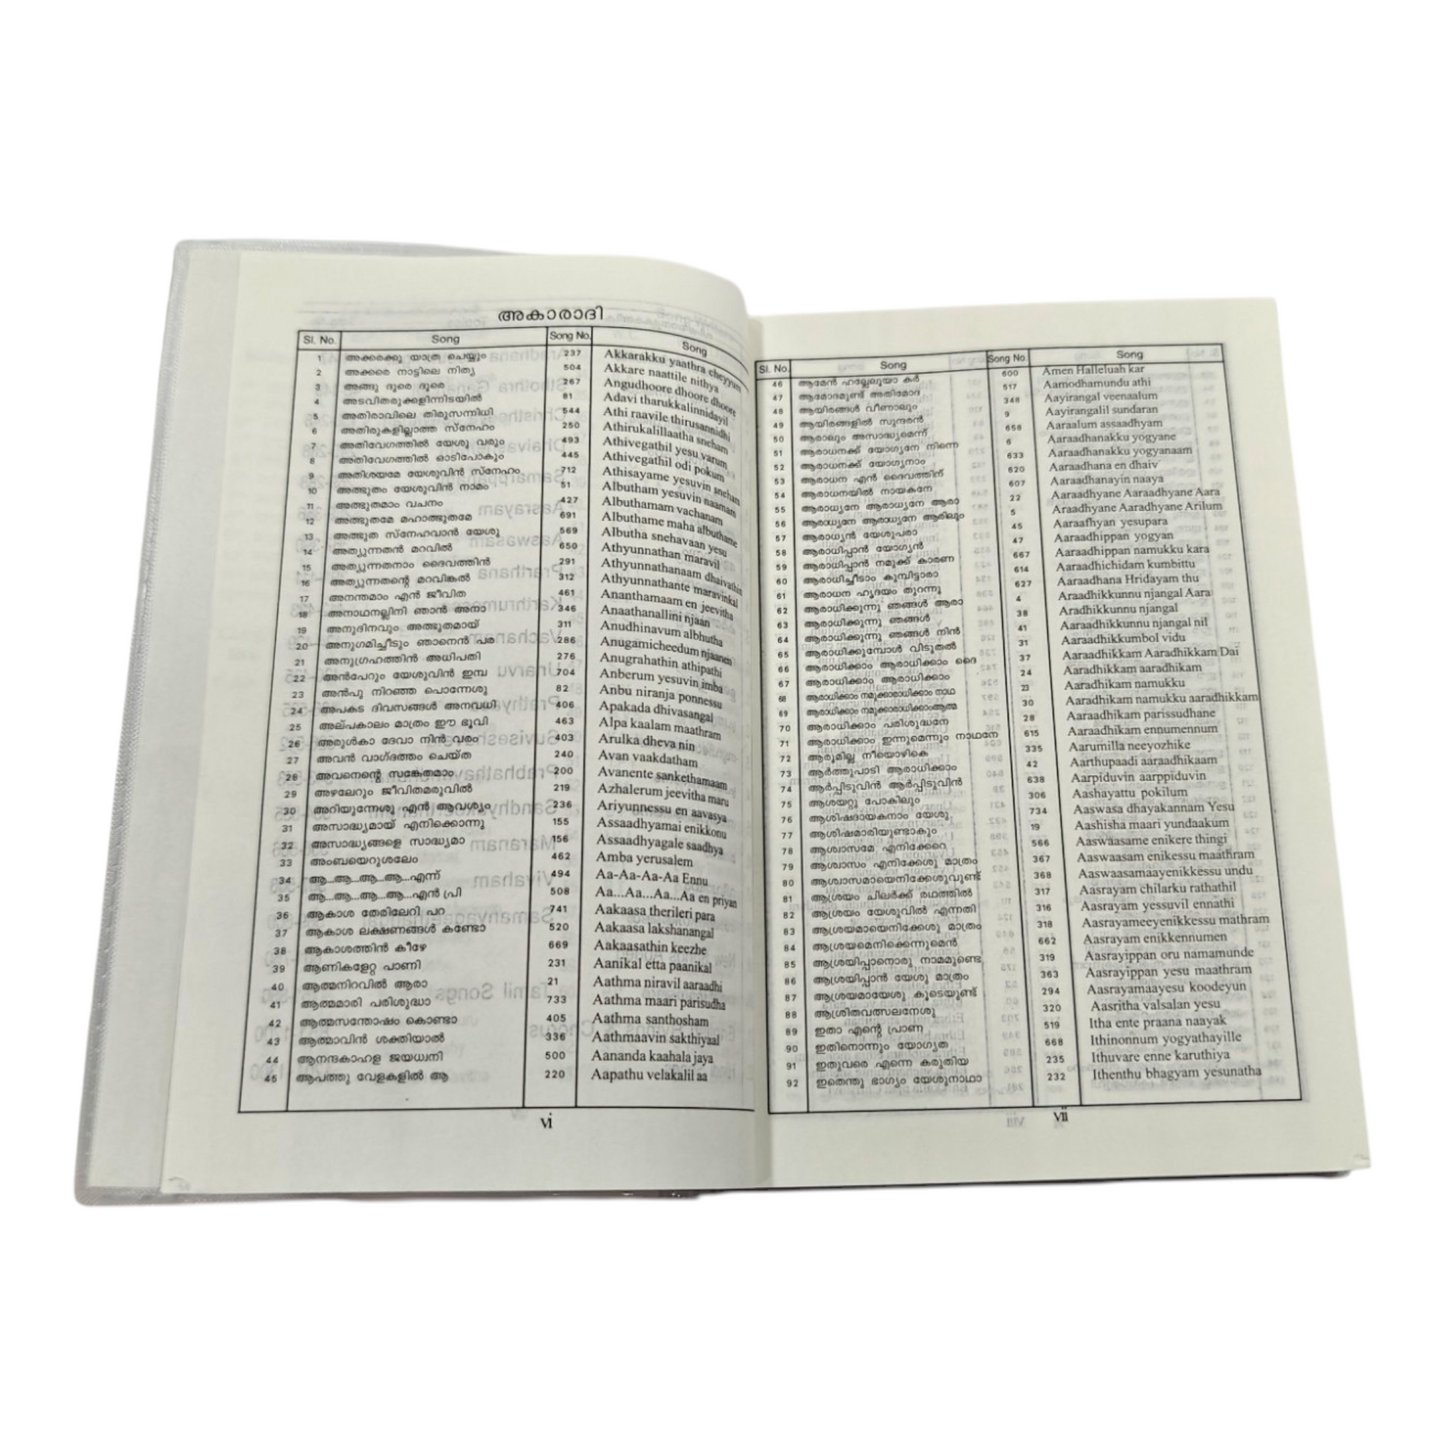 അകാരാദി
Sl. No. Song Song No. Song
1 അക്കരക്കു യാത്ര ചെയ്യും 237 Akkarakku yaathra cheyyum
2 അക്കരെ നാട്ടിലെ നിത്യ 504 Akkare naattile nithya
3 അങ്ങു ദൂരെ ദൂരെ 267 Angudhoore dhoore dhoore
4 അടവിതരുക്കളിന്നിടയിൽ 81 Adavi tharukkalinnidayil
5 അതിരാവിലെ തിരുസന്നിധി 544 Athi raavile thirusannidhi
6 അതിരുകളില്ലാത്ത സ്നേഹം 250 Athirukalillaatha sneham
7 അതിവേഗത്തിൽ യേശു വരും 493 Athivegathil yesu varum
8 അതിവേഗത്തിൽ ഓടിപോകും 445 Athivegathil odi pokum
9 അതിശയമേ യേശുവിൻ സ്നേഹം 712 Athisayame yesuvin sneham
10 അത്ഭുതം യേശുവിൻ നാമം 51 Albutham yesuvin naamam
11 അത്ഭുതമാം വചനം 427 Albuthamam vachanam
12 അത്ഭുതമേ മഹാത്ഭുതമേ 691 Albuthame maha albuthame
13 അത്ഭുത സ്നേഹവാൻ യേശു 569 Albutha snehavaan yesu
14 അത്യുന്നതൻ മറവിൽ 650 Athyunnathan maravil
15 അത്യുന്നതനാം ദൈവത്തിൻ 291 Athyunnathanaam dhaivathin
16 അത്യുന്നതന്റെ മറവിങ്കൽ 312 Athyunnathante maravinkal
17 അനന്തമാം എൻ ജീവിത 461 Ananthamaam en jeevitha
18 അനാഥനല്ലിനി ഞാൻ അനാ 346 Anaathanallini njaan
19 അനുദിനവും അത്ഭുതമായ് 311 Anudhinavum albhutha
20 അനുഗമിച്ചീടും ഞാനെൻ പര 286 Anugamicheedum njaanen
21 അനുഗ്രഹത്തിൻ അധിപതി 276 Anugrahathin athipathi
22 അൻപേറും യേശുവിൻ ഇമ്പ 704 Anberum yesuvin imba
23 അൻപു നിറഞ്ഞ പൊന്നേശു 82 Anbu niranja ponnessu
24 അപകട ദിവസങ്ങൾ അനവധി 406 Apakada dhivasangal
25 അല്പകാലം മാത്രം ഈ ഭൂവി 463 Alpa kaalam maathram
26 അരുൾകാ ദേവാ നിൻ വരം 403 Arulka dheva nin
27 അവൻ വാഗ്ദത്തം ചെയ്ത 240 Avan vaakdatham
28 അവനെന്റെ സങ്കേതമാം 200 Avanente sankethamaam
29 അഴലേറും ജീവിതമരുവിൽ 219 Azhalerum jeevitha maru
30 അറിയുന്നേശു എൻ ആവശ്യം 236 Ariyunnessu en aavasya
31 അസാദ്ധ്യമായ് എനിക്കൊന്നു 155 Assaadhyamai enikkonu
32 അസാദ്ധ്യങ്ങളെ സാദ്ധ്യമാ 156 Assaadhyagale saadhya
33 അംബയെറുശലേം 462 Amba yerusalem
34 ആ...ആ...ആ..ആ...എന്ന് 494 Aa-Aa-Aa-Aa Ennu
35 ആ...ആ...ആ..ആ...എൻ പ്രി 508 Aa...Aa...Aa...Aa en priyan
36 ആകാശ തേരിലേറി പറ 741 Aakaasa therileri para
37 ആകാശ ലക്ഷണങ്ങൾ കണ്ടോ 520 Aakaasa lakshanangal
38 ആകാശത്തിൻ കീഴേ 669 Aakaasathin keezhe
39 ആണികളേറ്റ പാണി 231 Aanikal etta paanikal
40 ആത്മനിറവിൽ ആരാ 21 Aathma niravil aaraadhi
41 ആത്മമാരി പരിശുദ്ധാ 733 Aathma maari parisudha
42 ആത്മസന്തോഷം കൊണ്ടാ 405 Aathma santhosham
43 ആത്മാവിൻ ശക്തിയാൽ 336 Aathmaavin sakthiyaal
44 ആനന്ദകാഹള ജയധ്വനി 500 Aananda kaahala jaya
45 ആപത്തു വേളകളിൽ ആ 220 Aapathu velakalil aa
vi
Sl. No. Song Song No. Song
46 ആമേൻ ഹല്ലേലൂയാ കർ 600 Amen Halleluah kar
47 ആമോദമുണ്ട് അതിമോദ 517 Aamodhamundu athi
48 ആയിരങ്ങൾ വീണാലും 348 Aayirangal veenaalum
49 ആയിരങ്ങളിൽ സുന്ദരൻ 9 Aayirangalil sundaran
50 ആരാലും അസാദ്ധ്യമെന്ന് 658 Aaraalum assaadhyam
51 ആരാധനക്ക് യോഗ്യനേ നിന്നെ 6 Aaraadhanakku yogyane
52 ആരാധനക്ക് യോഗ്യനാം 633 Aaraadhanakku yogyanaam
53 ആരാധന എൻ ദൈവത്തിന് 620 Aaraadhana en dhaiv
54 ആരാധനയിൽ നായകനേ 607 Aaraadhanayin naaya
55 ആരാധ്യനേ ആരാധ്യനേ ആരാ 22 Aaraadhyane Aaraadhyane Aara
56 ആരാധ്യനേ ആരാധ്യനേ ആരിലും 5 Araadhyane Aaradhyane Arilum
57 ആരാധ്യൻ യേശുപരാ 45 Aaraafhyan yesupara
58 ആരാധിപ്പാൻ യോഗ്യൻ 47 Aaraadhippan yogyan
59 ആരാധിപ്പാൻ നമുക്ക് കാരണ 667 Aaraadhippan namukku kara
60 ആരാധിച്ചീടാം കുമ്പിട്ടാരാ 614 Aaraadhichidam kumbittu
61 ആരാധന ഹൃദയം തുറന്നു 627 Aaraadhana Hridayam thu
62 ആരാധിക്കുന്നു ഞങ്ങൾ ആരാ 4 Aaraadhikkunnu njangal Aara
63 ആരാധിക്കുന്നു ഞങ്ങൾ 38 Aradhikkunnu njangal
64 ആരാധിക്കുന്നു ഞങ്ങൾ നിൻ 41 Aaraadhikkunnu njangal nil
65 ആരാധിക്കുമ്പോൾ വിടുതൽ 31 Aaraadhikkumbol vidu
66 ആരാധിക്കാം ആരാധിക്കാം ദൈ 37 Aaraadhikkam Aaradhikkam Dai
67 ആരാധിക്കാം ആരാധിക്കാം 24 Aaradhikkam aaradhikam
68 ആരാധിക്കാം നമുക്കാരാധിക്കാം നാഥ 23 Aaradhikam namukku
69 ആരാധിക്കാം നമുക്കാരാധിക്കാംആത്മ 30 Aaradhikam namukku aaradhikkam
70 ആരാധിക്കാം പരിശുദ്ധനേ 28 Aaraadhikam parissudhane
71 ആരാധിക്കാം ഇന്നുമെന്നും നാഥനേ 615 Aaraadhikam ennumennum
72 ആരുമില്ല നീയൊഴികെ 335 Aarumilla neeyozhike
73 ആർത്തുപാടി ആരാധിക്കാം 42 Aarthupaadi aaradhikaam
74 ആർപ്പിടുവിൻ ആർപ്പിടുവിൻ 638 Aarpiduvin aarppiduvin
75 ആശയറ്റു പോകിലും 306 Aashayattu pokilum
76 ആശിഷദായകനാം യേശു 734 Aaswasa dhayakannam Yesu
77 ആശിഷമാരിയുണ്ടാകും 19 Aashisha maari yundaakum
78 ആശ്വാസമേ എനിക്കേറെ 566 Aaswasame enikere thingi
79 ആശ്വാസം എനിക്കേശു മാത്രം 367 Aaswaasam enikessu maathram
80 ആശ്വാസമായെനിക്കേശുവുണ്ട് 368 Aaswaasamaayenikkessu undu
81 ആശ്രയം ചിലർക്ക് രഥത്തിൽ 317 Aasrayam chilarku rathathil
82 ആശ്രയം യേശുവിൽ എന്നതി 316 Aasrayam yessuvil ennathi
83 ആശ്രയമായെനിക്കേശു മാത്രം 318 Aasrayameeyenikkessu mathram
84 ആശ്രയമെനിക്കെന്നുമെൻ 662 Aasrayam enikkennumen
85 ആശ്രയിപ്പാനൊരു നാമമുണ്ടെ 319 Aasrayippan oru namamunde
86 ആശ്രയിപ്പാൻ യേശു മാത്രം 363 Aasrayippan yesu maathram
87 ആശ്രയമായേശു കൂടെയുണ്ട് 294 Aasrayamaayesu koodeyun
88 ആശ്രിതവത്സലനേശു 320 Aasritha valsalan yesu
89 ഇതാ എന്റെ പ്രാണ 519 Itha ente praana naayak
90 ഇതിനൊന്നും യോഗ്യത 668 Ithinonnum yogyathayille
91 ഇതുവരെ എന്നെ കരുതിയ 235 Ithuvare enne karuthiya
92 ഇതെന്തു ഭാഗ്യം യേശുനാഥാ 232 Ithenthu bhagyam yesunatha
vii